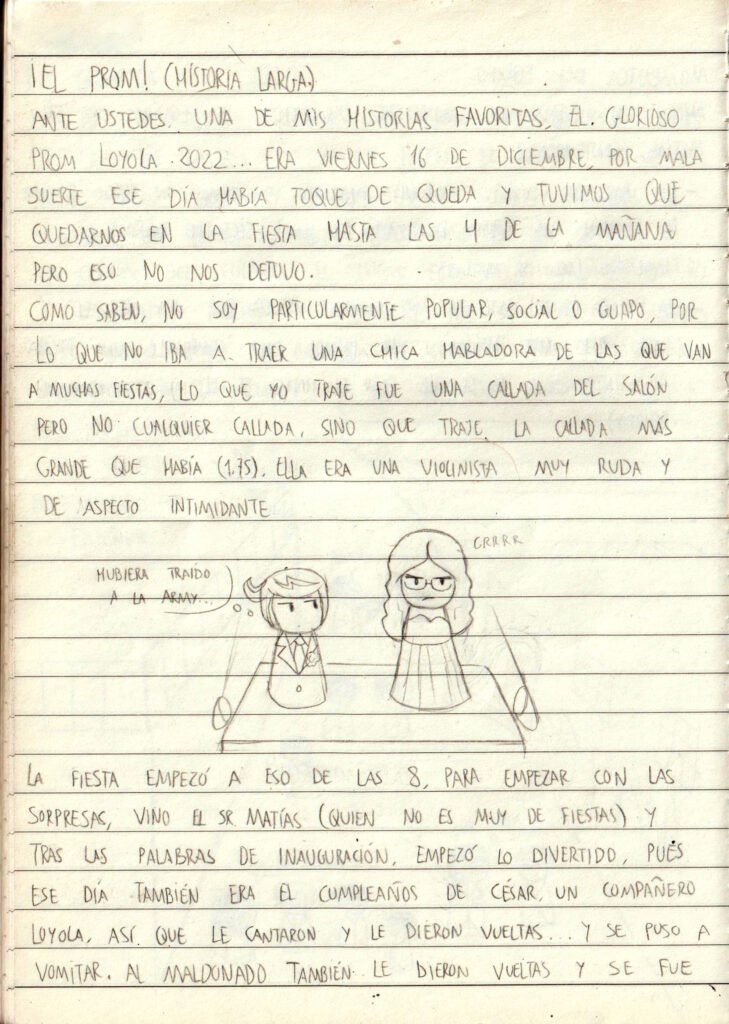 ¡EL PROM! (HISTORIA LARGA)
ANTE USTEDES, UNA DE MIS HISTORIAS FAVORITAS, EL GLORIOSO
PROM LOYOLA 2022... ERA VIERNES 16 DE DICIEMBRE, POR MALA
SUERTE ESE DÍA HABÍA TOQUE DE QUEDA Y TUVIMOS QUE
QUEDARNOS EN LA FIESTA HASTA LAS 4 DE LA MAÑANA
PERO ESO NO NOS DETUVO.
COMO SABEN, NO SOY PARTICULARMENTE POPULAR, SOCIAL O GUAPO, POR
LO QUE NO IBA A TRAER UNA CHICA HABLADORA DE LAS QUE VAN
A MUCHAS FIESTAS, LO QUE YO TRAJE FUE UNA CALLADA DEL SALÓN
PERO NO CUALQUIER CALLADA, SINO QUE TRAJE LA CALLADA MÁS
GRANDE QUE HABÍA (1.75). ELLA ERA UNA VIOLINISTA MUY RUDA Y
DE ASPECTO INTIMIDANTE
GRRRR
HUBIERA TRAÍDO
A LA ARMY...
LA FIESTA EMPEZÓ A ESO DE LAS 8, PARA EMPEZAR CON LAS
SORPRESAS, VINO EL SR. MATÍAS (QUIEN NO ES MUY DE FIESTAS) Y
TRAS LAS PALABRAS DE INAUGURACIÓN, EMPEZÓ LO DIVERTIDO, PUÉS
ESE DÍA TAMBIÉN ERA EL CUMPLEAÑOS DE CÉSAR, UN COMPAÑERO
LOYOLA, ASÍ QUE LE CANTARON Y LE DIERON VUELTAS... Y SE PUSO A
VOMITAR. AL MALDONADO TAMBIÉN LE DIERON VUELTAS Y SE FUE